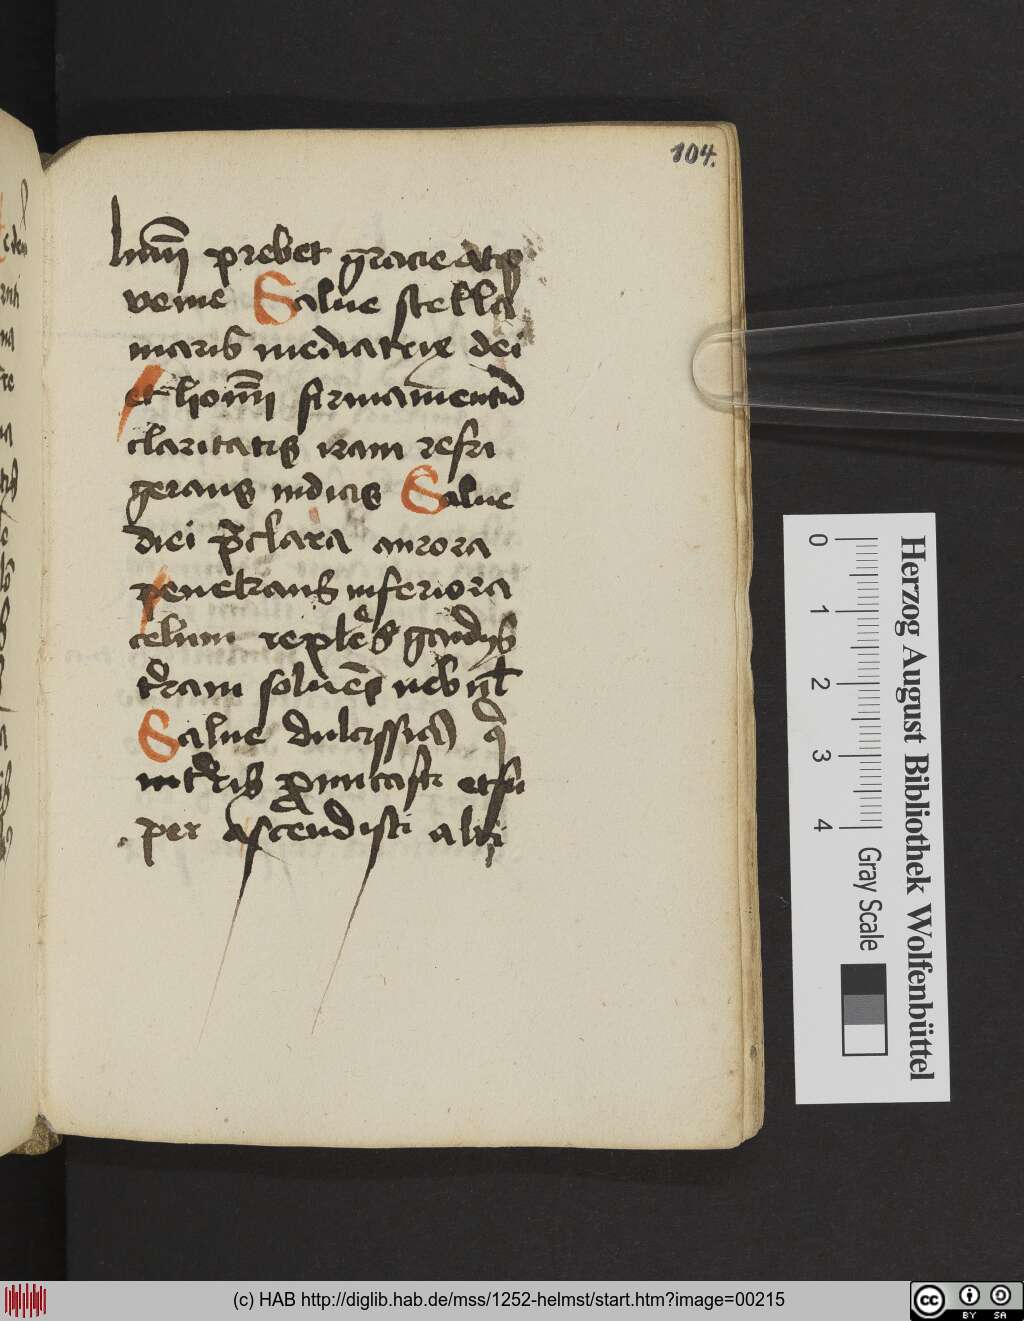 104.
lumī prebet gracie atq
venie Salue stella
maris mediatrix dei
et hoīm firmamentū
claritatis iram refri
gerans iudicis Salue
diei p̄clara aurora
penetrans inferiora
celum reples gaudijs
t̄ram soluēs
Salue dulcissīa q
et su
per ascendisti alti
Herzog August Bibliothek Wolfenbüttel
0 1 2 3 4 Gray Scale
(c) HAB http://diglib.hab.de/mss/1252-helmst/start.htm?image=00215
cc BY SA